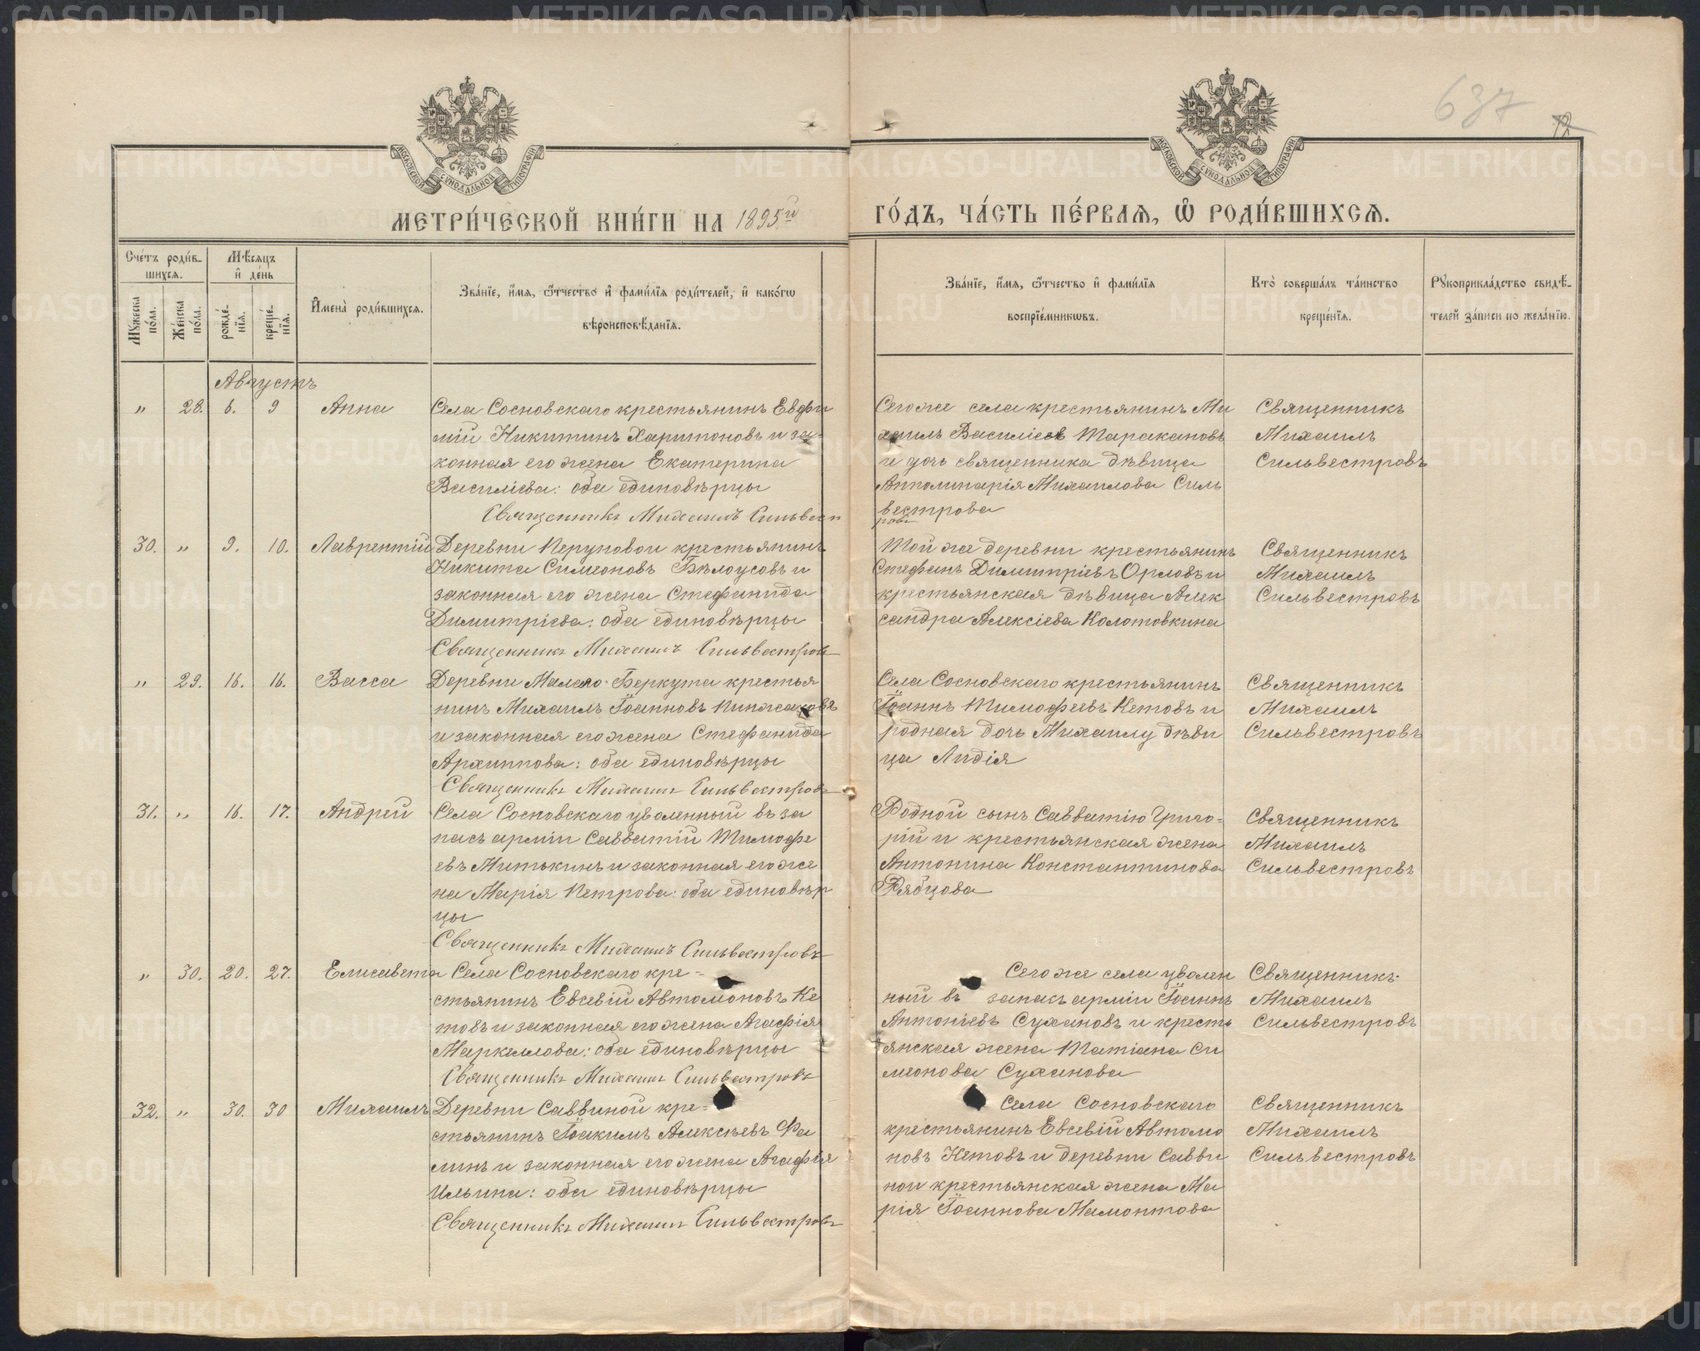 637
12
МЕТРИ́ЧЕСКОЙ КНИ́ГИ НА 1895й ГО́ДЪ, ЧА́СТЬ ПЕ́РВАѦ, Ѡ҆ РОДИ́ВШИХСѦ.
Сче́тъ роди́в-
шихсѧ.
Мꙋжеска
по́ла.
Же́нска
по́ла.
Мѣ́сѧцъ
и҆ де́нь
рожде́-
нїѧ.
креще́-
нїѧ.
И҆мена̀ роди́вшихсѧ.
Зва́нїе, и҆́мѧ, ѻ҆́тчество и҆ фами́лїѧ роди́телей, и҆ како́гѡ
вѣроисповѣ́данїѧ.
Зва́нїе, и҆́мѧ, ѻ҆́тчество и҆ фами́лїѧ
воспрїе́мникѡвъ.
Кто̀ соверша́лъ та́инство
креще́нїѧ.
Рꙋкоприкла́дство свидѣ́-
телей за́писи по жела́нїю.
Августъ
„ 28. 6. 9 Анна
Села Сосновскаго крестьянинъ Евфи
мій Никитинъ Харитоновъ и за-
конная его жена Екатерина
Василіева: оба единовѣрцы
Священникъ Михаилъ Сильвест
ровъ
Сегоже села крестьянинъ Ми
хаилъ Василіевъ Таракановъ
и дочь священника дѣвица
Апполинарія Михаилова Силь
вестрова
Священникъ
Михаилъ
Сильвестровъ
30. „ 9. 10. Лаврентій
Деревни Перуновой крестьянинъ
Никита Симеоновъ Бѣлоусовъ и
законная его жена Стефанида
Димитріева: оба единовѣрцы
Священникъ Михаилъ Сильвестровъ
Той же деревни крестьянинъ
Стефанъ Димитріевъ Орловъ и
крестьянская дѣвица Алек
сандра Алексіева Колотовкина
Священникъ
Михаилъ
Сильвестровъ
„ 29. 16. 16. Васса
Деревни Малаго-Беркута крестья
нинъ Михаилъ Іоанновъ Пинжаковъ
и законная его жена Стефанида
Архиппова: оба единовѣрцы
Священникъ Михаилъ Сильвестровъ
Села Сосновскаго крестьянинъ
Іоаннъ Тимофеевъ Кетовъ и
родная дочь Михаилу дѣви
ца Лидія
Священникъ
Михаилъ
Сильвестровъ
31. „ 16. 17. Андрей
Села Сосновскаго уволенный въ за
пасъ арміи Савватій Тимофе
евъ Митькинъ и законная его же
на Марія Петрова: оба единовѣр
цы
Священникъ Михаилъ Сильвестровъ
Родной сынъ Савватію Григо-
рій и крестьянская жена
Антонина Константинова
Рябцова
Священникъ
Михаилъ
Сильвестровъ
„ 30. 20. 27. Елисавета
Села Сосновскаго кре-
стьянинъ Евсевій Автомоновъ Ке
товъ и законная его жена Агафія
Маркеллова: оба единовѣрцы
Священникъ Михаилъ Сильвестровъ
Сегоже села уволен
ный въ запасъ арміи Іоаннъ
Антоніевъ Сухановъ и кресть
янская жена Татіана Си
меонова Суханова
Священникъ
Михаилъ
Сильвестровъ
32. „ 30. 30 Михаилъ
Деревни Саввиной кре-
стьянинъ Іоакимъ Алексѣевъ Фа
линъ и законная его жена Агафія
Ильина: оба единовѣрцы
Священникъ Михаилъ Сильвестровъ
Села Сосновскаго
крестьянинъ Евсевій Автомо
новъ Кетовъ и деревни Савви
ной крестьянская жена Ма
рія Іоаннова Мамонтова
Священникъ
Михаилъ
Сильвестровъ
METRIKI.GASO-URAL.RU